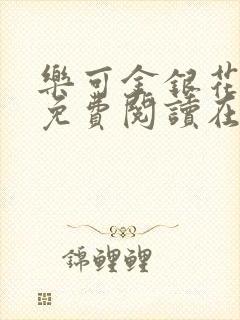 樂可金銀花
免費閱讀在
錦鯉鯉